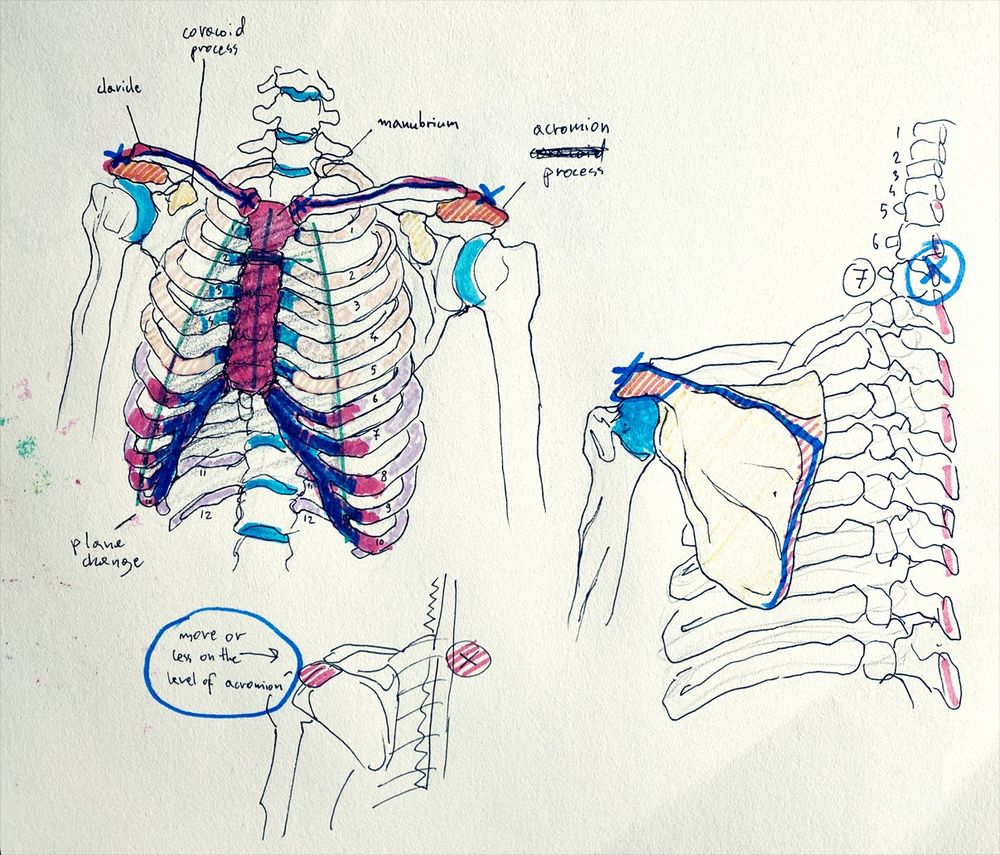 coracoid
process
clavicle
manubrium
acromion
process
1
2
3
4
5
6
7
8
9
10
11
12
2
3
4
6
7
11
12
10
plane
change
1
2
3
4
5
6
7
more or
less on the
level of acromion